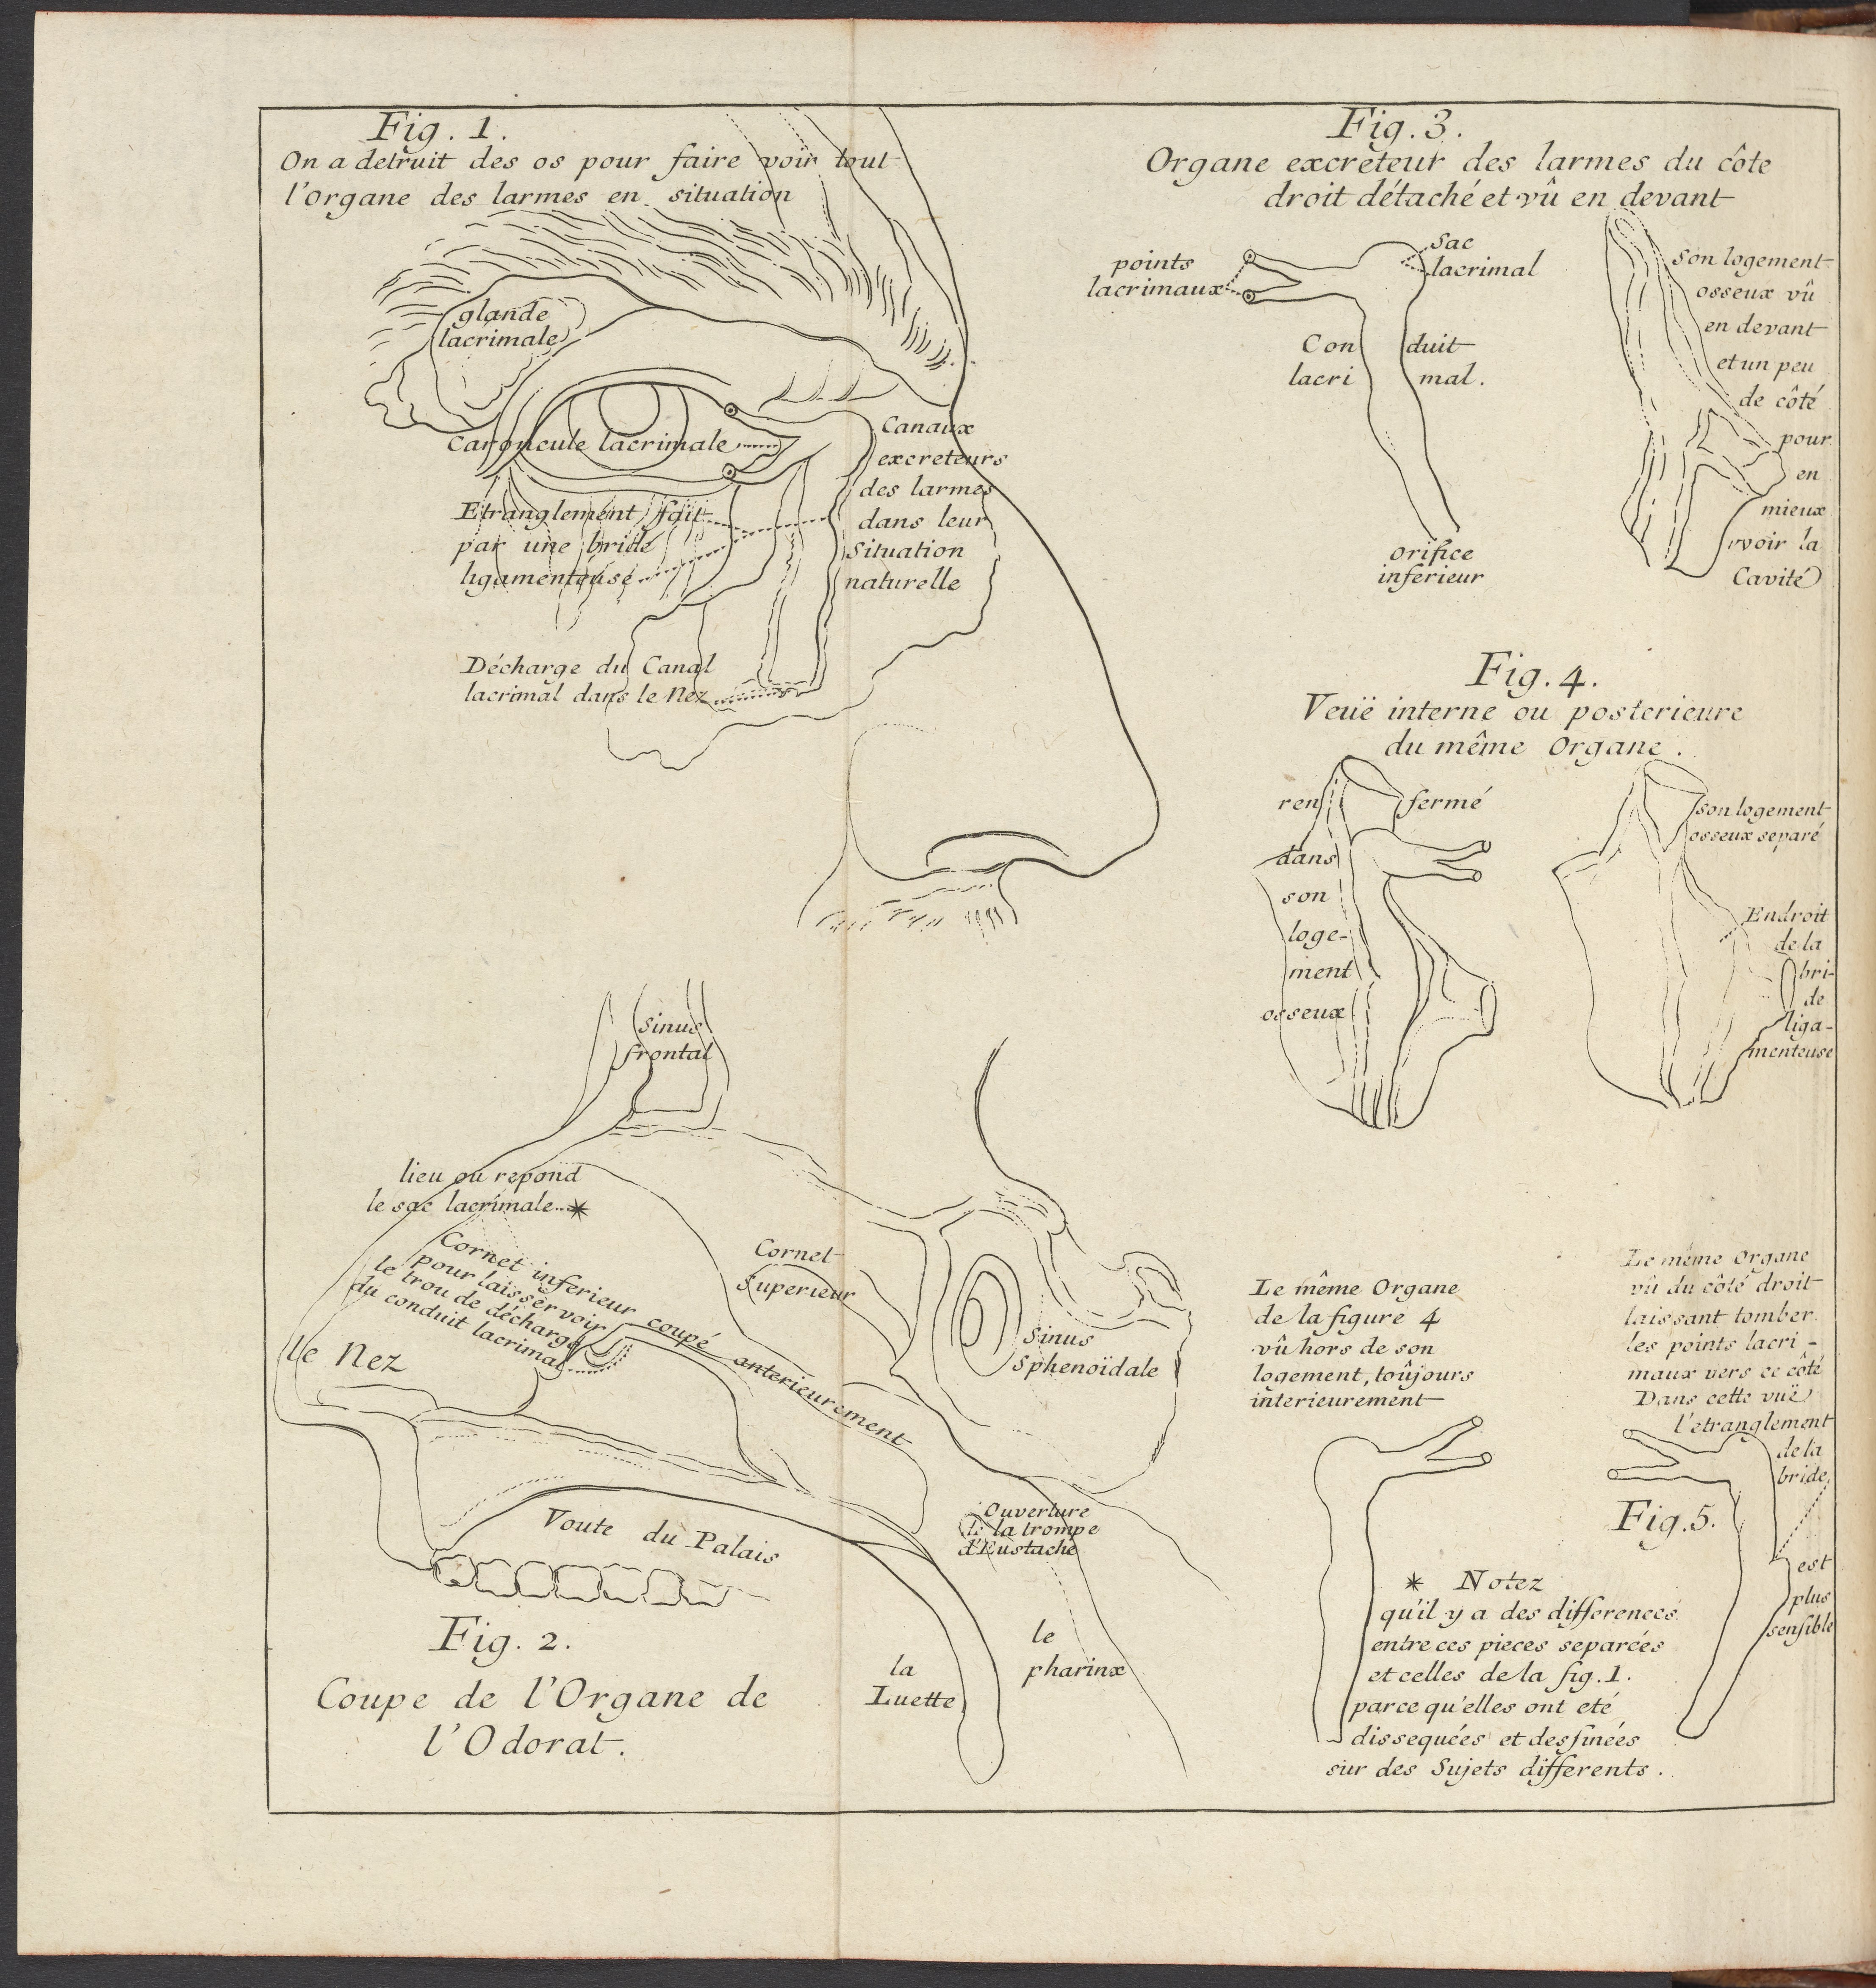 Fig. 1.
On a detruit des os pour faire voir tout
l'organe des larmes en situation
glande
lacrimale
Caroncule lacrimale
Canaux
excreteurs
des larmes
dans leur
Situation
naturelle
Etranglement fait
par une bride
ligamenteuse
Décharge du Canal
lacrimal dans le Nez
Fig. 3.
Organe excreteur des larmes du côte
droit détaché et vû en devant
points
lacrimaux
Sac
lacrimal
Con duit
lacri mal.
orifice
inferieur
Son logement
osseux vû
en devant
et un peu
de côté
pour
en
mieux
voir la
Cavité
Fig. 4.
Veüe interne ou posterieure
du même Organe.
ren fermé
dans
son
loge-
ment
osseux
son logement
osseux separé
Endroit
de la
bri-
de
liga-
menteuse
Sinus
frontal
lieu ou repond
le sac lacrimale *
Cornet inferieur coupé anterieurement
pour laisser voir
le trou de décharge
du conduit lacrimal
le Nez
Cornet
Superieur
Sinus
Sphenoïdale
Voute du Palais
Ouverture
de la trompe
d'Eustache
la
Luette
le
pharinx
Fig. 2.
Coupe de l'Organe de
l'Odorat.
Le même Organe
de la figure 4
vû hors de son
logement, toûjours
interieurement
Le même Organe
vû du côté droit
laissant tomber
les points lacri-
maux vers ce côté
Dans cette vuë
l'etranglement
de la
bride
est
plus
sensible
Fig. 5.
* Notez
qu'il y a des differences
entre ces pieces separées
et celles de la fig. 1.
parce qu'elles ont eté
dissequées et dessinées
sur des Sujets differents.